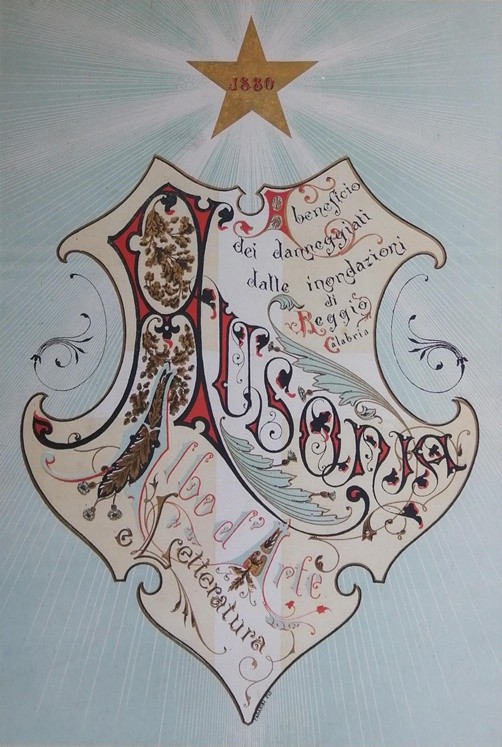 1880
A beneficio
dei danneggiati
dalle inondazioni
di
Reggio
Calabria
Ausonia
Albo d'Arte
e Letteratura